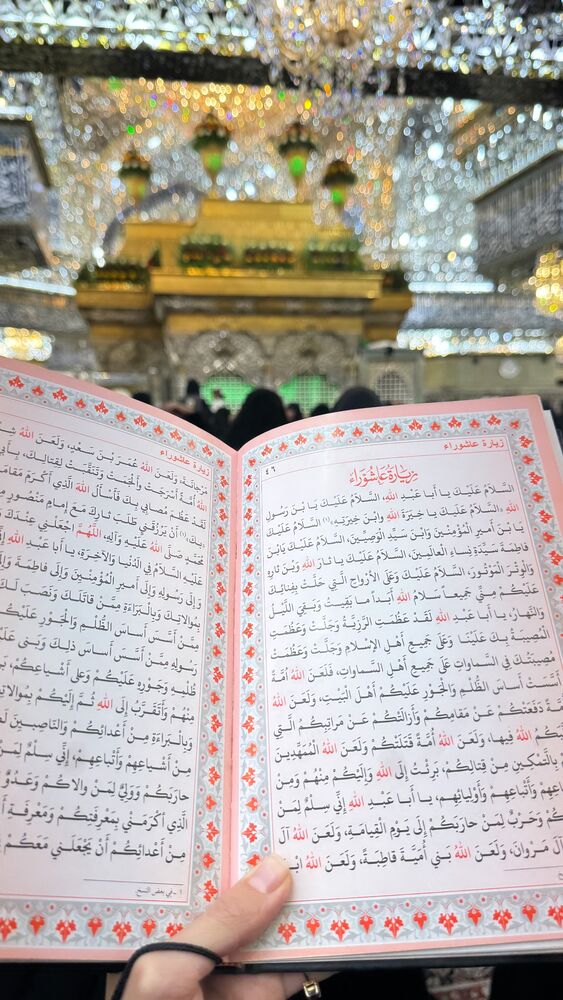 زيارة عاشوراء
٤٦
زِيَارَةُ عَاشُورَاءَ
السَّلامُ عَلَيْكَ يا أبا عَبْدِ اللهِ، السَّلامُ عَلَيْكَ يَا بْنَ رَسُولِ
اللهِ، السَّلامُ عَلَيْكَ يا خِيَرَةَ اللهِ وابْنَ خِيَرَتِهِ،(١) السَّلامُ عَلَيْكَ
يا بْنَ أميرِ المُؤْمِنينَ وابْنَ سَيِّدِ الْوَصِيّينَ، السَّلامُ عَلَيْكَ يَابْنَ
فاطِمَةَ سَيِّدَةِ نِساءِ الْعالَمينَ، السَّلامُ عَلَيْكَ يا ثارَ اللهِ وَابْنَ ثارِهِ
وَالْوِتْرَ الْمَوْتُورَ، السَّلامُ عَلَيْكَ وَعَلَى الأرْواحِ الَّتي حَلَّتْ بِفِنائِكَ
عَلَيْكُمْ مِنّي جَميعاً سَلامُ اللهِ أَبَداً ما بَقيتُ وَبَقِيَ اللَّيْلُ
وَالنَّهارُ، يا أبا عَبْدِ اللهِ لَقَدْ عَظُمَتِ الرَّزِيَّةُ وَجَلَّتْ وعَظُمَتِ
الْمُصيبَةُ بِكَ عَلَيْنا وَعَلى جَميعِ أهْلِ الإسْلامِ وَجَلَّتْ وَعَظُمَتْ
مُصيبَتُكَ فِي السَّماواتِ عَلى جَميعِ أَهْلِ السَّماواتِ، فَلَعَنَ اللهُ أُمَّةً
أَسَّسَتْ أساسَ الظُّلْمِ وَالْجَوْرِ عَلَيْكُمْ أهْلَ الْبَيْتِ، وَلَعَنَ اللهُ
دَفَعَتْكُمْ عَنْ مَقامِكُمْ وَأَزالَتْكُمْ عَنْ مَراتِبِكُمُ الَّتي
اللهُ فيها، وَلَعَنَ اللهُ أُمَّةً قَتَلَتْكُمْ وَلَعَنَ اللهُ الْمُمَهِّدينَ
بِالتَّمْكينِ مِنْ قِتالِكُمْ، بَرِئْتُ إلَى اللهِ وَإلَيْكُمْ مِنْهُمْ وَمِنْ
وَأَتْباعِهِمْ وَأَوْلِيائِهِم، يا أبا عَبْدِ اللهِ إنّي سِلْمٌ لِمَنْ
وَحَرْبٌ لِمَنْ حارَبَكُمْ إلى يَوْمِ الْقِيامَةِ، وَلَعَنَ اللهُ آلَ
مَرْوانَ، وَلَعَنَ اللهُ بَني أُمَيَّةَ قاطِبَةً، وَلَعَنَ اللهُ
زيارة عاشوراء
مَرْجانَةَ، وَلَعَنَ اللهُ عُمَرَ بْنَ سَعْدٍ، وَلَعَنَ اللهُ
اللهُ أُمَّةً أَسْرَجَتْ وَأَلْجَمَتْ وَتَنَقَّبَتْ لِقِتالِكَ،
لَقَدْ عَظُمَ مُصابي بِكَ فَأَسْأَلُ اللهَ الَّذي أَكْرَمَ مَقامَكَ
أَنْ يَرْزُقَني طَلَبَ ثارِكَ مَعَ إمامٍ مَنْصُورٍ
مُحَمَّدٍ صَلَّى اللهُ عَلَيْهِ وَآلِهِ، اللَّهُمَّ اجْعَلْني عِنْدَكَ
عَلَيْهِ السَّلامُ فِي الدُّنْيا وَالآخِرَةِ، يا أبا عَبْدِ اللهِ
وَإلى رَسُولِهِ وَإلى أميرِ الْمُؤْمِنينَ وَإلى فاطِمَةَ
بِمُوالاتِكَ وَبِالْبَراءَةِ مِمَّنْ قاتَلَكَ وَنَصَبَ لَكَ
مِمَّنْ أَسَّسَ أساسَ الظُّلْمِ وَالْجَوْرِ عَلَيْكُمْ
رَسُولِهِ مِمَّنْ أَسَّسَ أساسَ ذلِكَ وَبَنى عَلَيْهِ
ظُلْمِهِ وَجَوْرِهِ عَلَيْكُمْ وَعَلى أشْياعِكُمْ،
مِنْهُمْ وَأَتَقَرَّبُ إلَى اللهِ ثُمَّ إلَيْكُمْ بِمُوالاتِكُمْ
وَبِالْبَراءَةِ مِنْ أعْدائِكُمْ وَالنّاصِبينَ
مِنْ أشْياعِهِمْ وَأَتْباعِهِمْ، إنّي سِلْمٌ لِمَنْ
حارَبَكُمْ وَوَلِيٌّ لِمَنْ والاكُمْ وَعَدُوٌّ
الَّذي أكْرَمَني بِمَعْرِفَتِكُمْ وَمَعْرِفَةِ
مِنْ أعْدائِكُمْ أنْ يَجْعَلَني مَعَكُمْ
١ - في بعض النسخ.